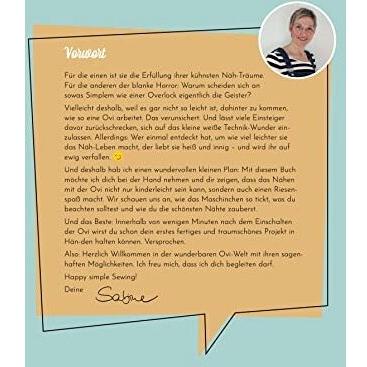 Vorwort
Für die einen ist sie die Erfüllung ihrer kühnsten Näh-Träume.
Für die anderen der blanke Horror: Warum scheiden sich an
sowas Simplem wie einer Overlock eigentlich die Geister?
Vielleicht deshalb, weil es gar nicht so leicht ist, dahinter zu kommen,
wie so eine Ovi arbeitet. Das verunsichert. Und lässt viele Einsteiger
davor zurückschrecken, sich auf das kleine weiße Technik-Wunder ein-
zulassen. Allerdings: Wer einmal entdeckt hat, um wie viel leichter sie
das Näh-Leben macht, der liebt sie heiß und innig – und wird ihr auf
ewig verfallen. 😉
Und deshalb hab ich einen wundervollen kleinen Plan: Mit diesem Buch
möchte ich dich bei der Hand nehmen und dir zeigen, dass das Nähen
mit der Ovi nicht nur kinderleicht sein kann, sondern auch einen Riesen-
spaß macht. Wir schauen uns an, wie das Maschinchen so tickt, was du
beachten solltest und wie du die schönsten Nähte zauberst.
Und das Beste: Innerhalb von wenigen Minuten nach dem Einschalten
der Ovi wirst du schon dein erstes fertiges und traumschönes Projekt in
Hän-den halten können. Versprochen.
Also: Herzlich Willkommen in der wunderbaren Ovi-Welt mit ihren sagen-
haften Möglichkeiten. Ich freu mich, dass ich dich begleiten darf.
Happy simple Sewing!
Deine
Sabine